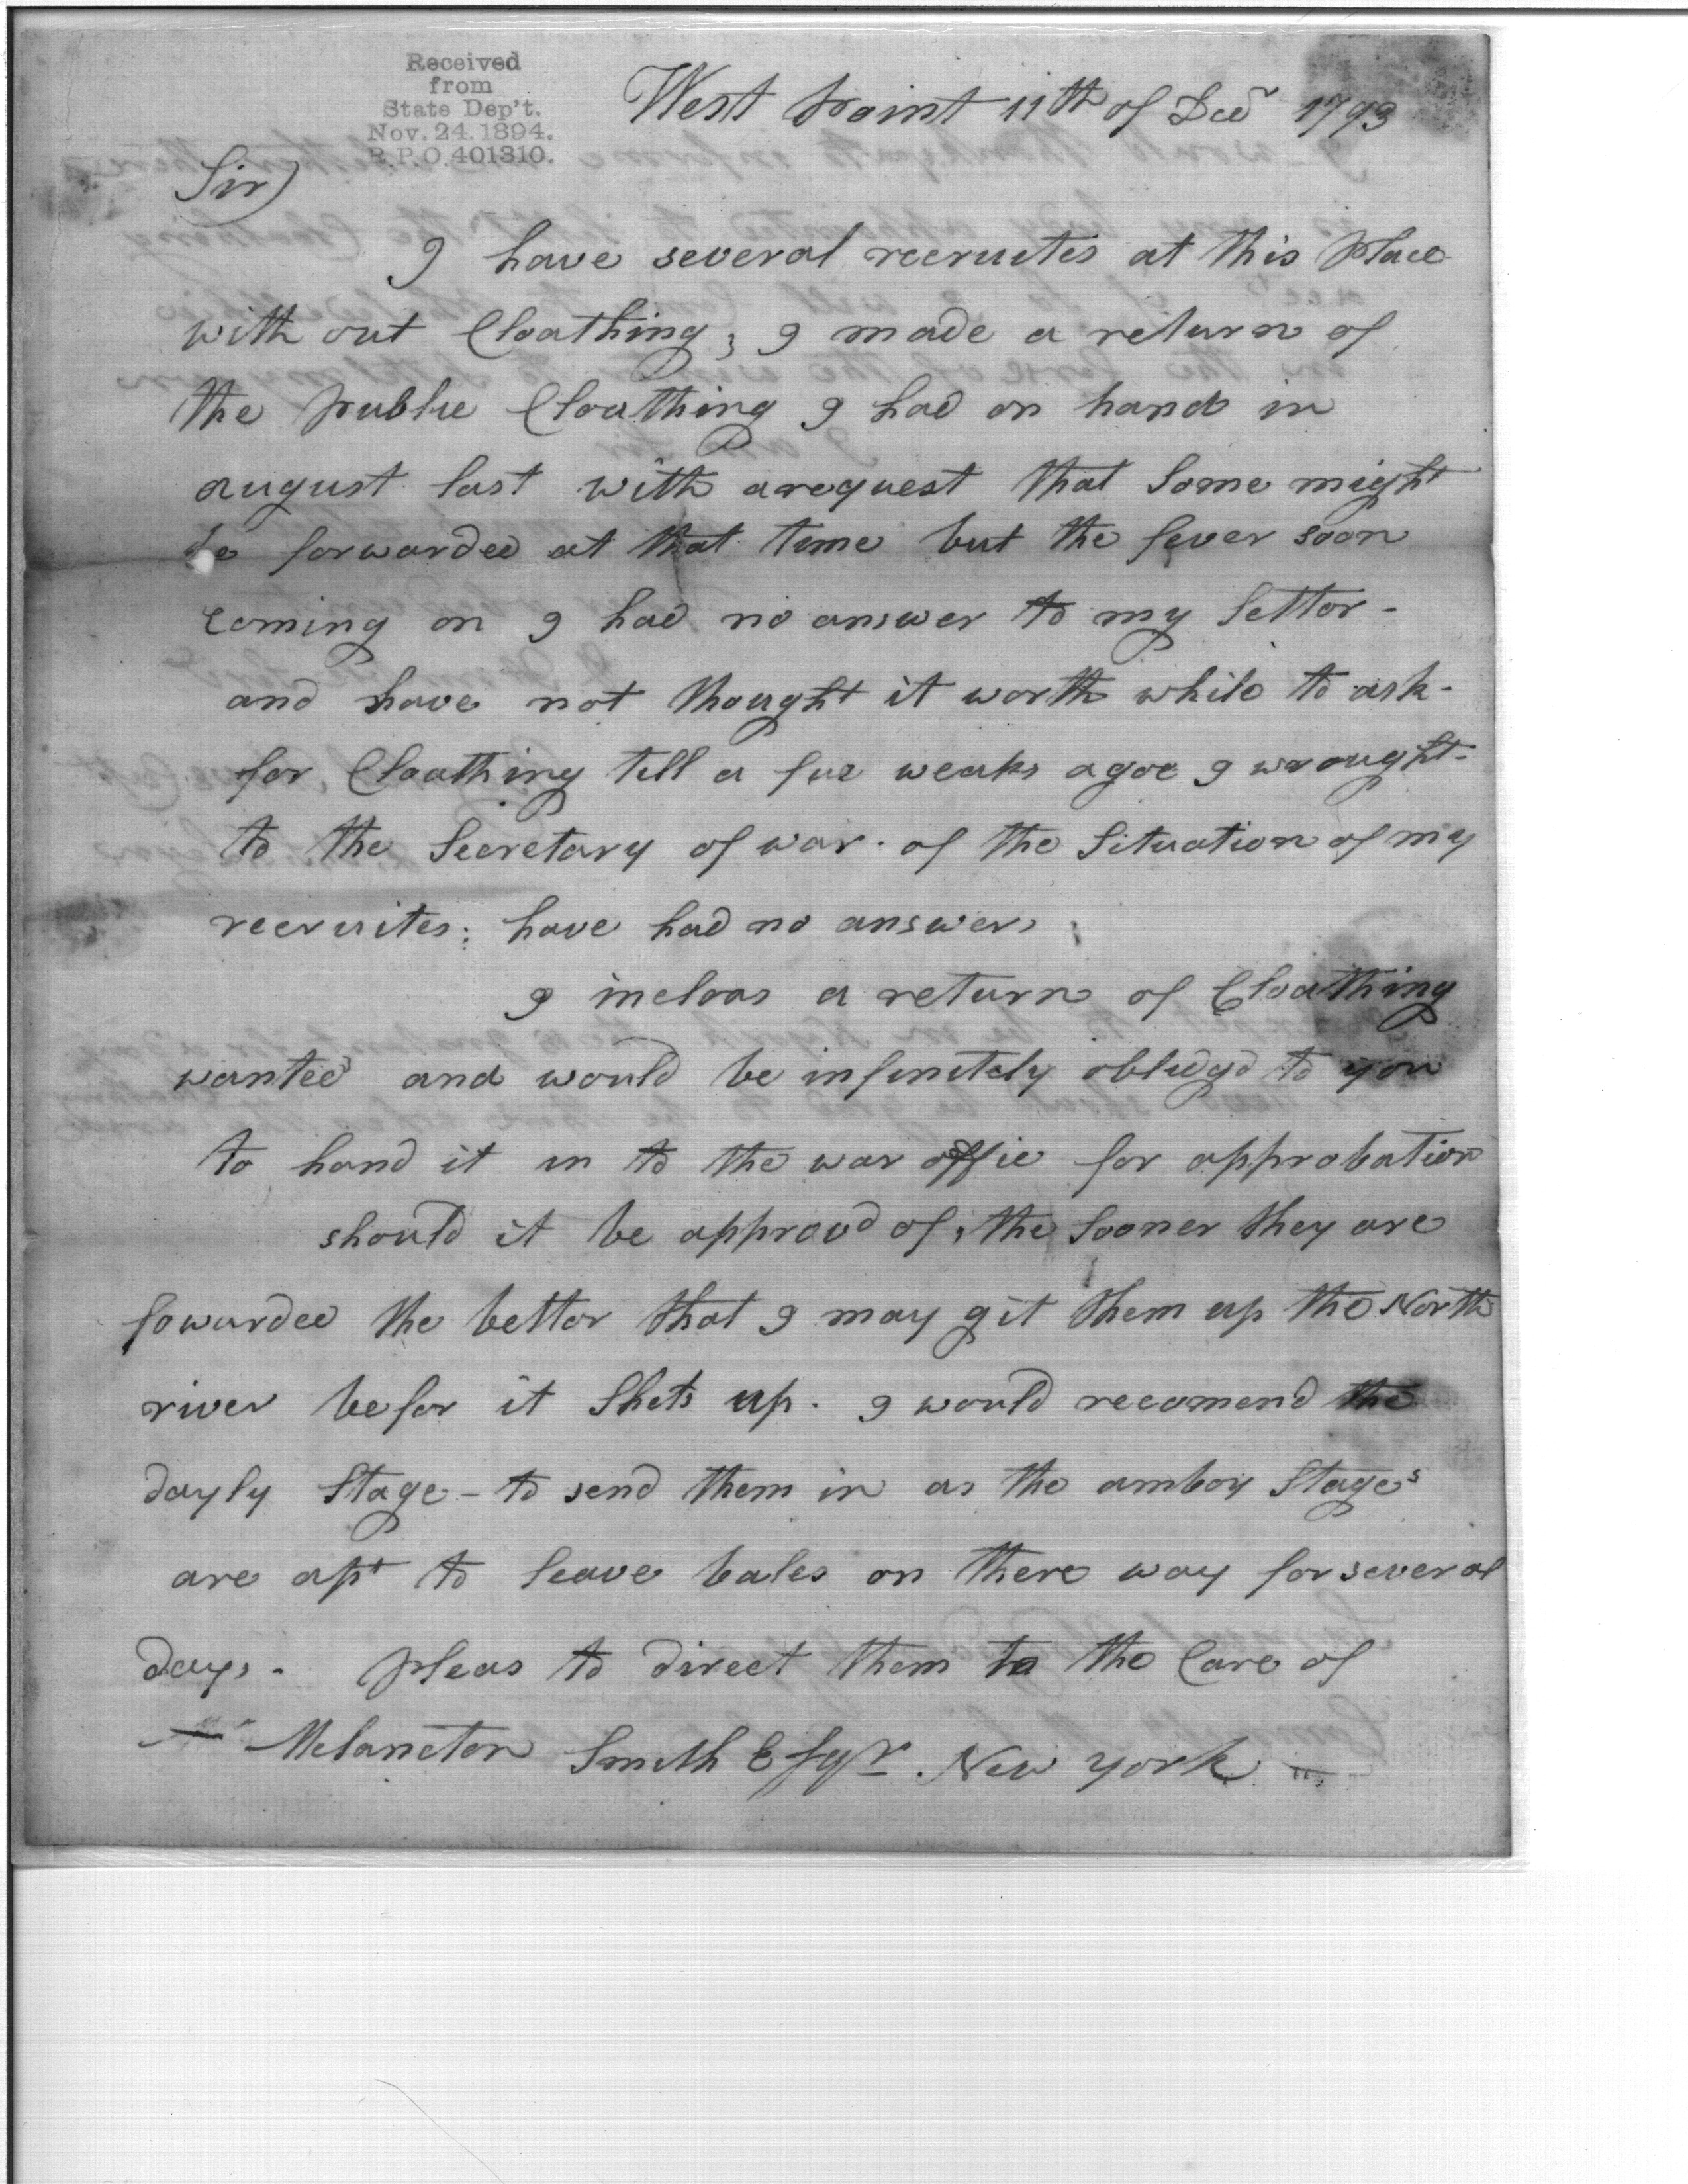 Received
from
State Dep't.
Nov. 24. 1894.
R.P.O. 401310.
West point 11th of Decr 1793
Sir)
I have several recruites at this place
with out Cloathing; I made a return of
the publie Cloathing I had on hand in
august last with a request that Some might
be forwarded at that time but the fever soon
coming on I had no answer to my Lettor -
and have not thought it worth while to ask -
for Cloathing till a fue weaks agoe I wrought -
to the Secretary of war. of the Situation of my
recruites: have had no answer,
I incloas a return of Cloathing
wanted and would be infinitely obledgd to you
to hand it in to the war offic for approbation
should it be approvd of, the Sooner they are
fowarded the bettor that I may git them up the North
river befor it Shets up. I would recomend the
dayly Stage - to send them in as the amboy Stages
are apt to leave bales on there way for several
days. - pleas to direct them to the Care of
Melancton Smith Esqr. New york